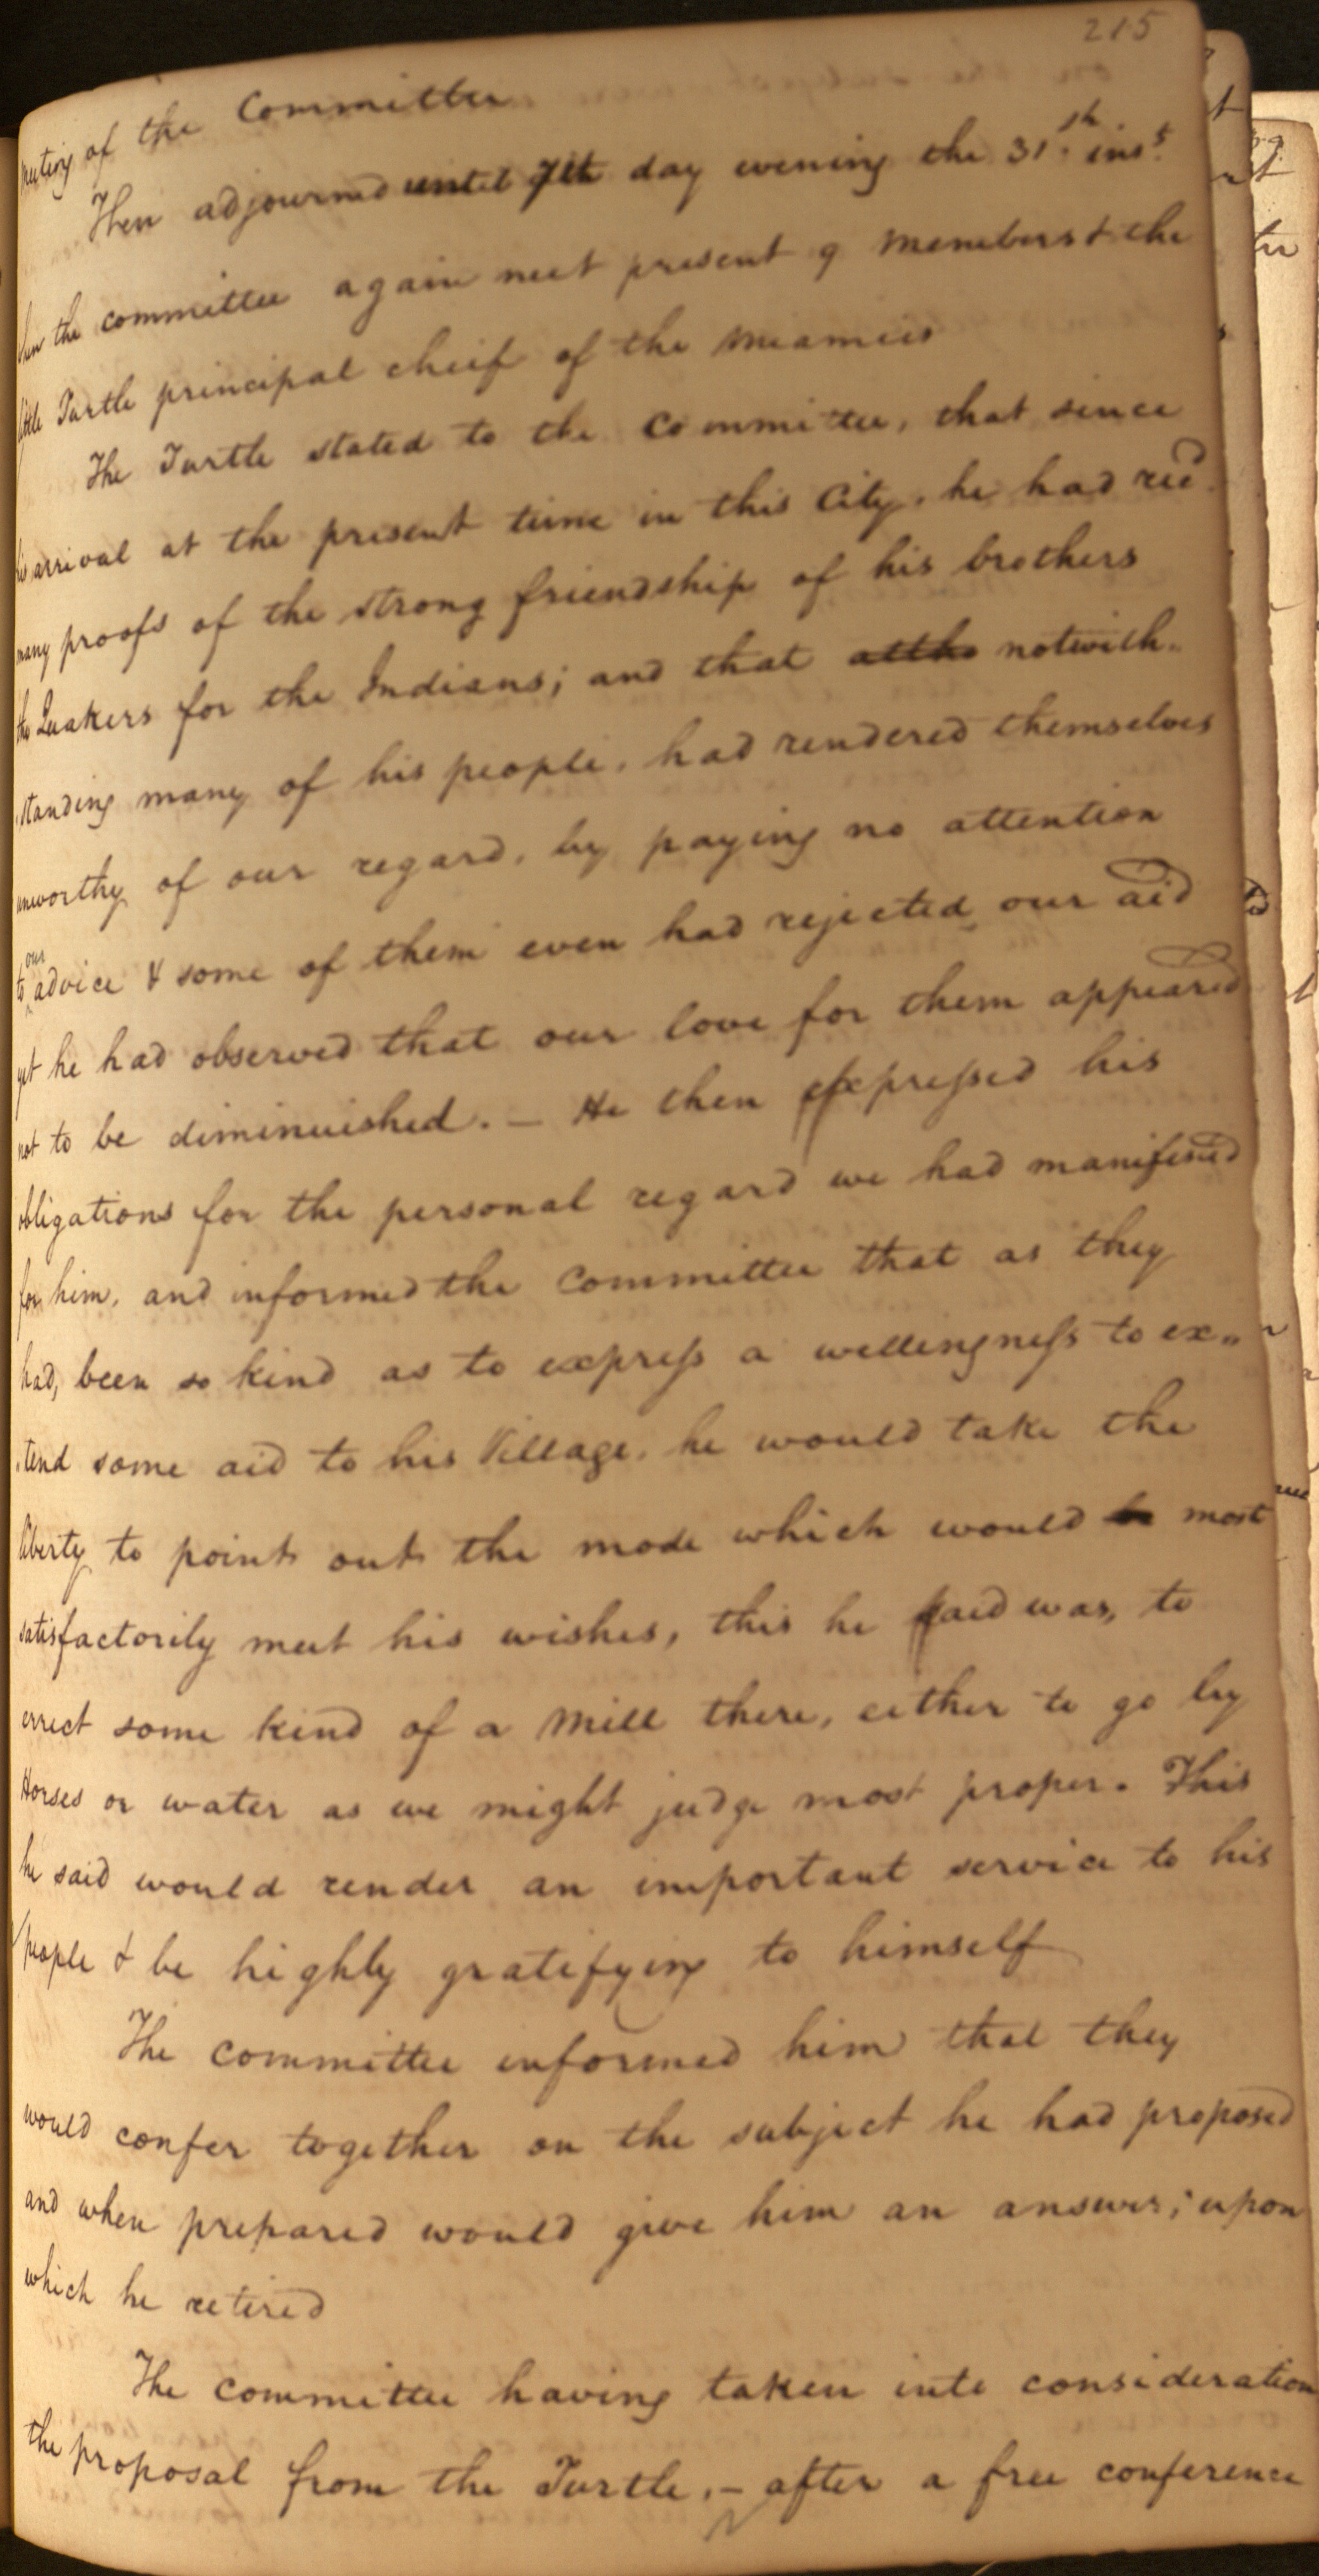 215
meeting of the Committee
Then adjourned until 7th day evening the 31st. inst.
when the committee again meet present 9 Members & the
little Turtle principal cheif of the Miamies
The Turtle stated to the Committee, that since
his arrival at the present time in this City, he had recd.
many proofs of the strong friendship of his brothers
the Quakers for the Indians; and that altho notwith-
standing many of his people, had rendered themselves
unworthy of our regard, by paying no attention
to our advice & some of them even had rejected our aid
yet he had observed that our love for them appeared
not to be diminuished. – He then expressed his
obligations for the personal regard we had manifested
for him, and informed the Committee that as they
had, been so kind as to express a willingness to ex-
-tend some aid to his Village, he would take the
liberty to point out the mode which would be most
satisfactorily meet his wishes, this he said was, to
errect some kind of a Mill there, either to go by
Horses or water as we might judge most proper. This
he said would render an important service to his
people & be highly gratifying to himself
The committee informed him that they
would confer together on the subject he had proposed
and when prepared would give him an answer; upon
which he retired
The committee having taken into consideration
the proposal from the Turtle, – after a free conference